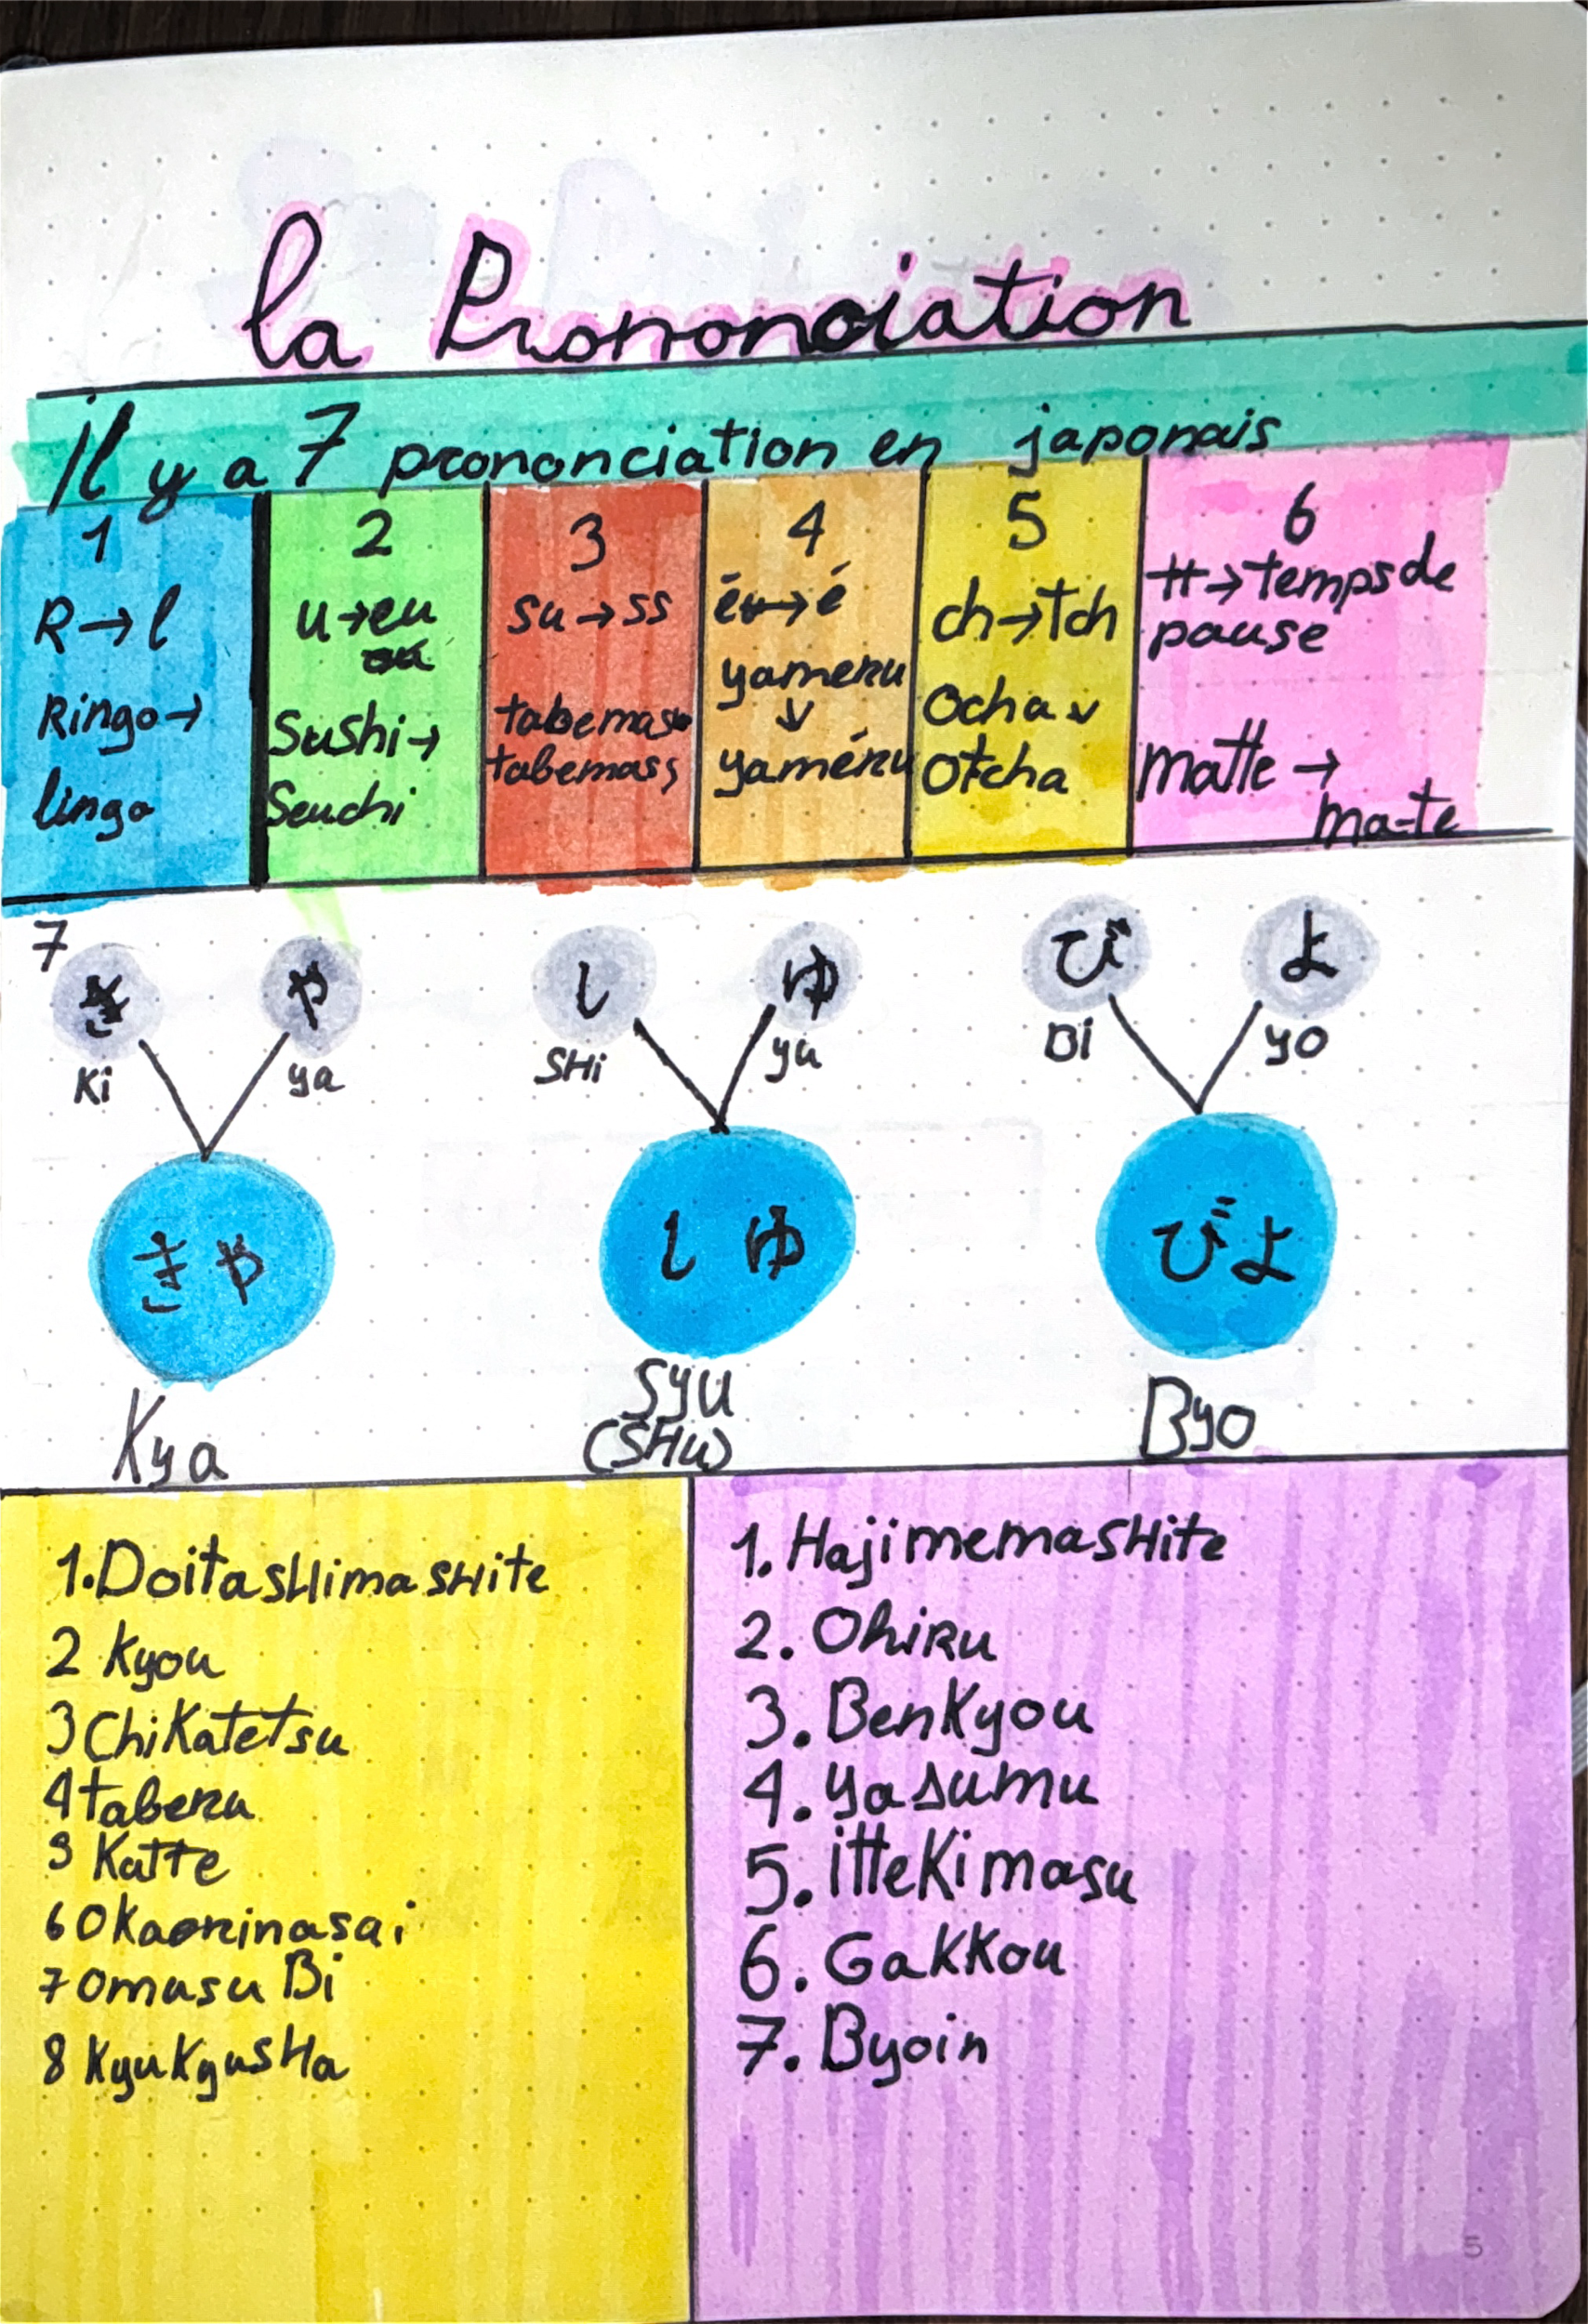 la Prononciation
Il y a 7 prononciation en japonais
1
R→l
Ringo→
lingo
2
u→eu
Sushi→
Seuchi
3
su→ss
tabemasu
tabemass
4
→é
yameru
↓
yaméru
5
ch→tch
Ocha↓
Otcha
6
tt→temps de
pause
matte→
ma-te
7
き や
Ki ya
きや
Kya
し ゆ
SHi yu
しゆ
Syu
(SHu)
び よ
Bi yo
びよ
Byo
1.DoitasHimasHite
2 Kyou
3 ChiKatetsu
4 taberu
5 Katte
6 Okaerinasai
7 omusuBi
8 KyuKyusHa
1. HajimemasHite
2. Ohiru
3. BenKyou
4. yasumu
5. itteKimasu
6. GaKKou
7. Byoin
5